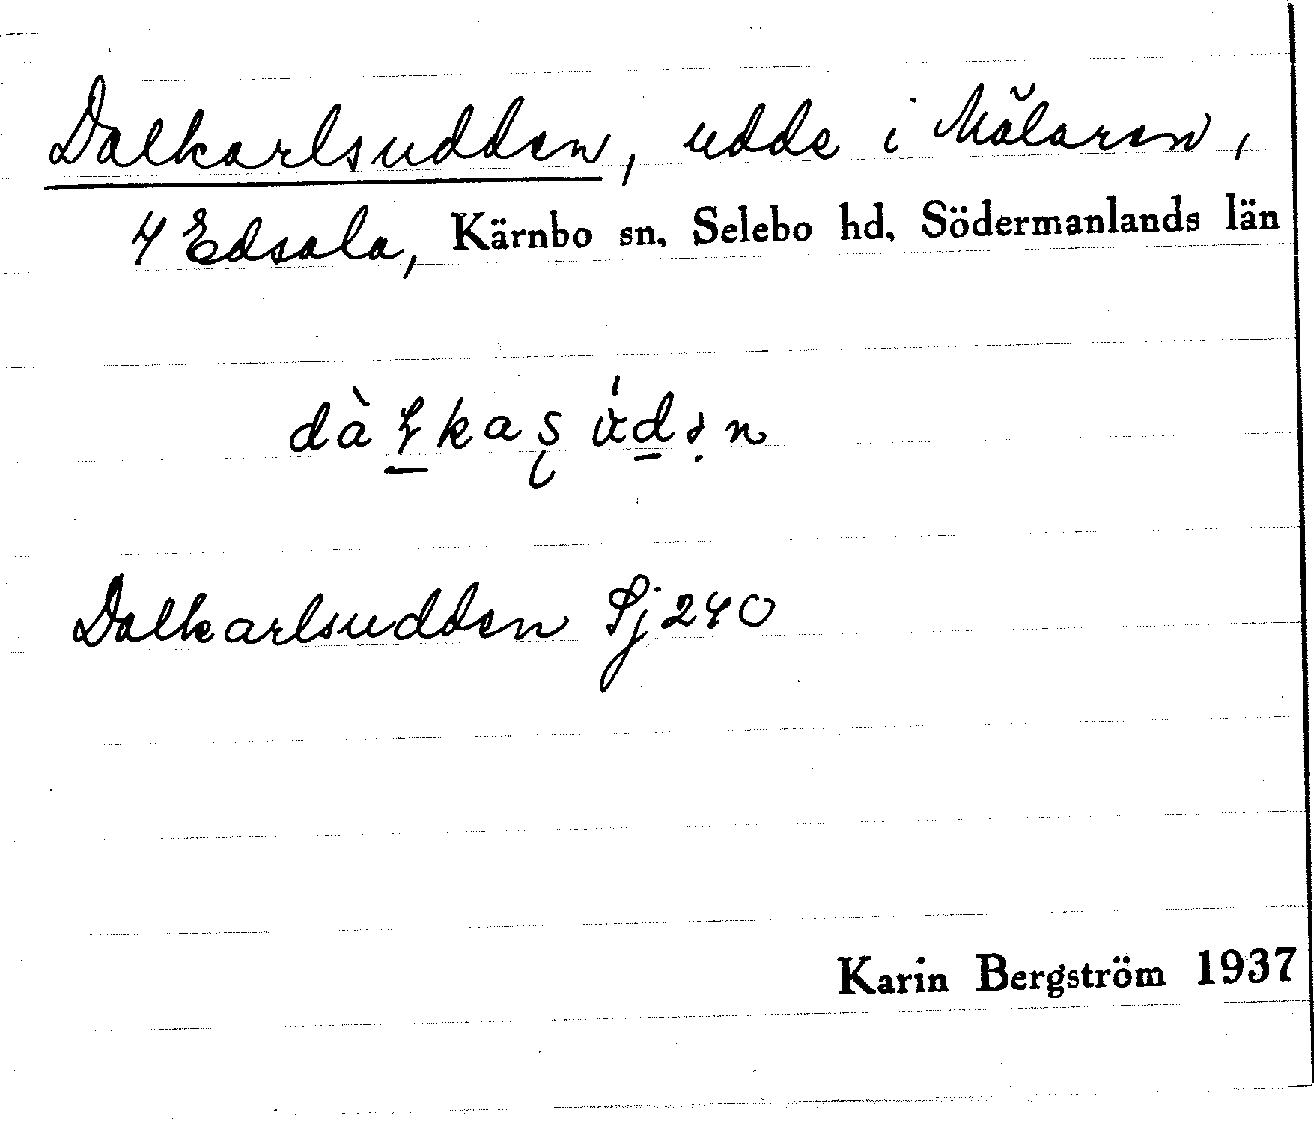 Dalkarlsudden, udde i Mälaren,
4 Edsala, Kärnbo sn, Selebo hd, Södermanlands län
Dalkarlsudden Sj 240
Karin Bergström 1937